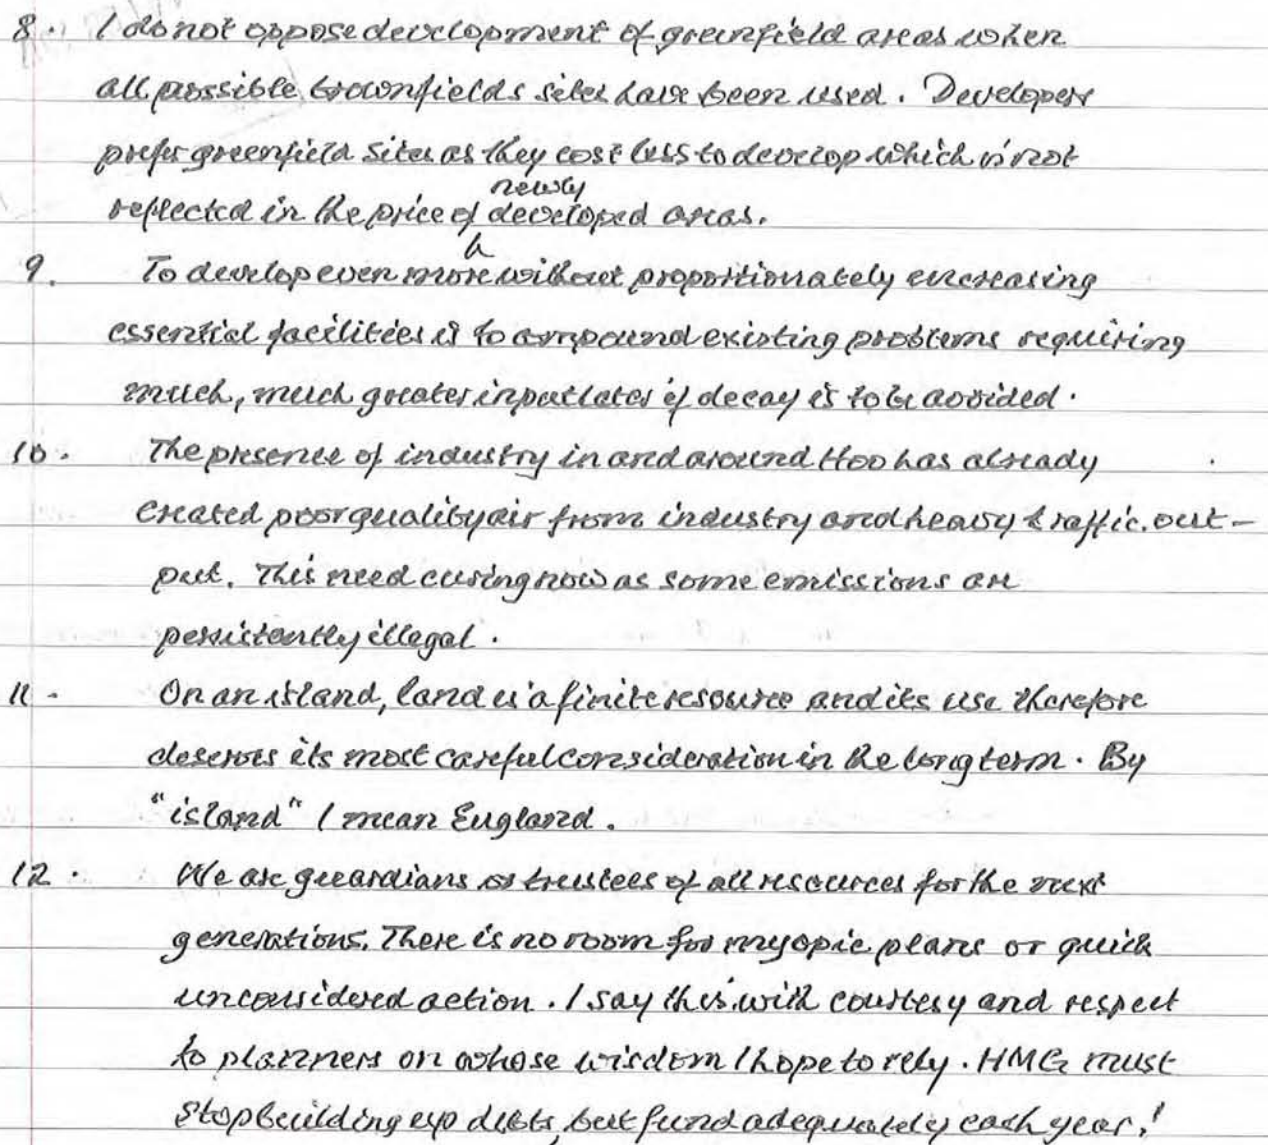 8. I do not oppose development of greenfield areas when
all possible brownfields sites have been used. Developers
prefer greenfield sites as they cost less to develop which is not
newly
reflected in the price of developed areas.
9. To develop even more without proportionately encreasing
essential facilities is to compound existing problems requiring
much, much greater input later if decay is to be avoided.
10. The presence of industry in and around Hoo has already
created poor quality air from industry and heavy traffic. out-
put. This need curing now as some emissions are
persistantly illegal.
11. On an island, land is a finite resource and its use therefore
deserves its most careful consideration in the long term. By
"island" I mean England.
12. We are guardians or trustees of all resources for the next
generations. There is no room for myopic plans or quick
unconsidered action. I say this with courtesy and respect
to planners on whose wisdom I hope to rely. HMG must
stop building up debts, but fund adequately each year!